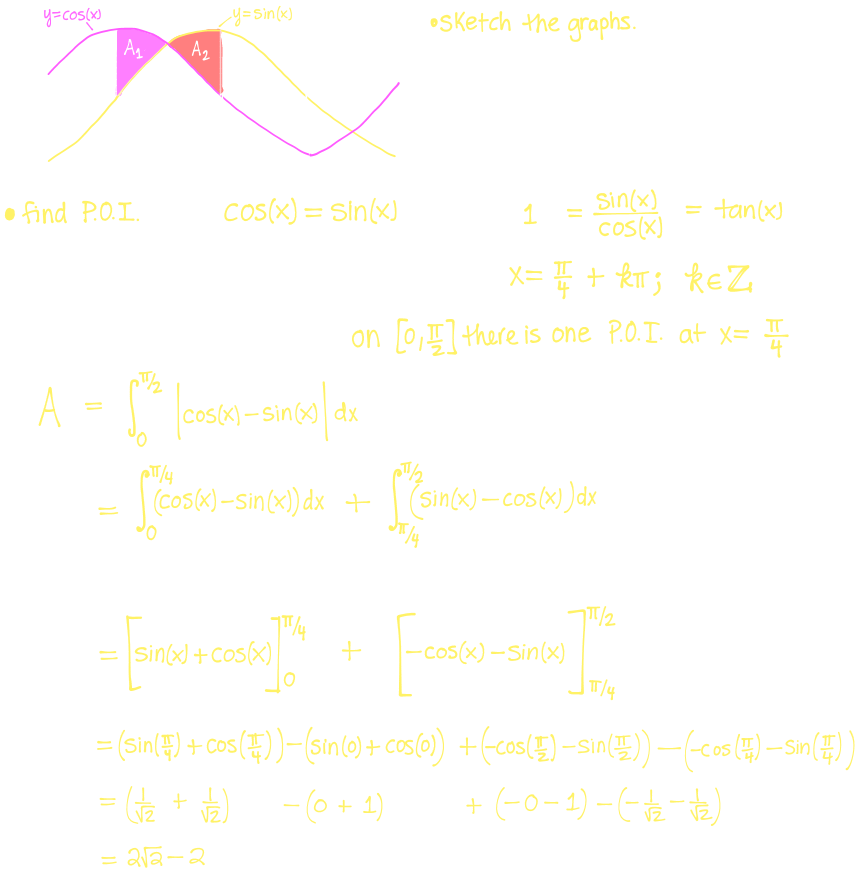 y=cos(x) y=sin(x)
•Sketch the graphs.
A₁ A₂
• find P.O.I. cos(x) = sin(x) 1 = sin(x)/cos(x) = tan(x)
x = π/4 + kπ; k∈ℤ
on [0,π/2] there is one P.O.I. at x = π/4
A = ∫₀^(π/2) |cos(x) − sin(x)| dx
= ∫₀^(π/4) (cos(x) − sin(x)) dx + ∫_(π/4)^(π/2) (sin(x) − cos(x)) dx
= [sin(x) + cos(x)]₀^(π/4) + [−cos(x) − sin(x)]_(π/4)^(π/2)
= (sin(π/4) + cos(π/4)) − (sin(0) + cos(0)) + (−cos(π/2) − sin(π/2)) − (−cos(π/4) − sin(π/4))
= (1/√2 + 1/√2) − (0 + 1) + (−0 − 1) − (−1/√2 − 1/√2)
= 2√2 − 2